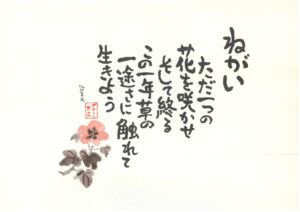 ねがい
ただ一つの
花を咲かせ
そして終る
この一年草の
一途さに触れて
生きよう